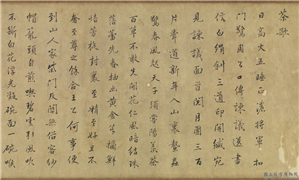 茶歌
日高丈五睡正濃將軍扣
門驚周公口傳諫議送書
信白絹斜三道印開緘宛
見諫議面首閱月團三百
片聞道新年入山裏蟄蟲
驚春風起天子須嘗陽羨茶
百草不敢先開花仁風暗結珠
蓓蕾先春抽出黃金芽摘鮮
焙芳旋封裹至精至好且不
奢至尊之餘合王公何事便
到山人家柴門反關無俗客紗
帽籠頭自煎喫碧雲引風吹
不斷白花浮光凝碗面一碗喉